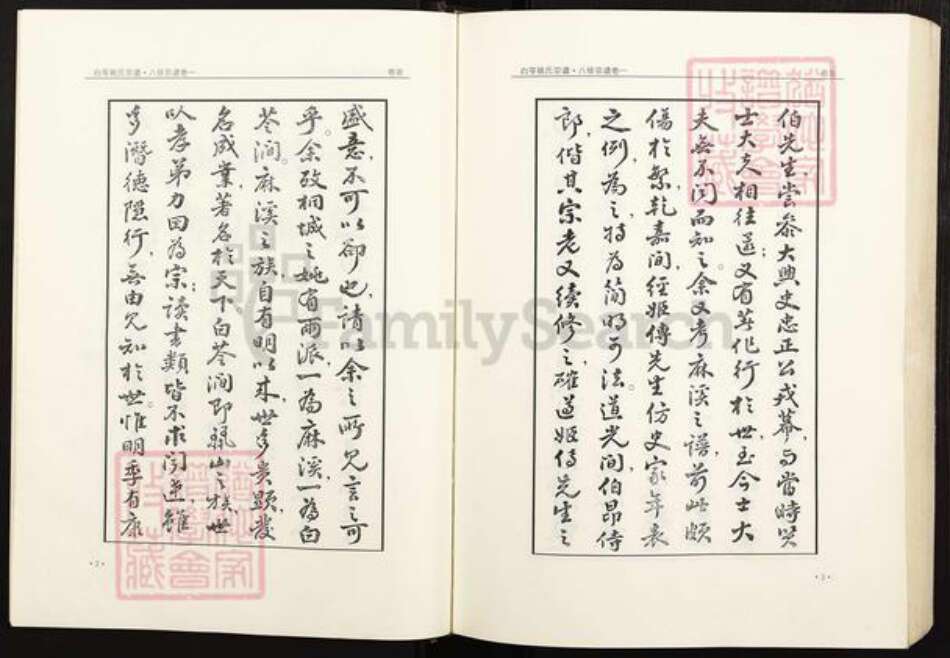 盛意,不可以卻也,請以余之所見言之可
乎。余攷桐城之姚有兩派,一為麻溪,一為白
苓澗。麻溪之族,自有明以來,世多貴顯,發
名成業,著名於天下。白苓澗即瓠山之族,世
以孝弟力田為宗,读书類皆不求聞達,雖
多潛德隱行,無由見知於世。惟明季有康
·2·
伯先生,嘗參大興史忠正公戎幕,与當時賢
士大夫相往還,又有著作行於世,至今士大
夫無不聞而知之。余又考麻溪之譜,前此頗
傷於繁,乾嘉間經姬傳先生仿史家年表
之例,為之,特為简明可法。道光間,伯昂侍
郎,偕其宗老又續修之,確遵姬傳先生之
·3·
FamilySearch